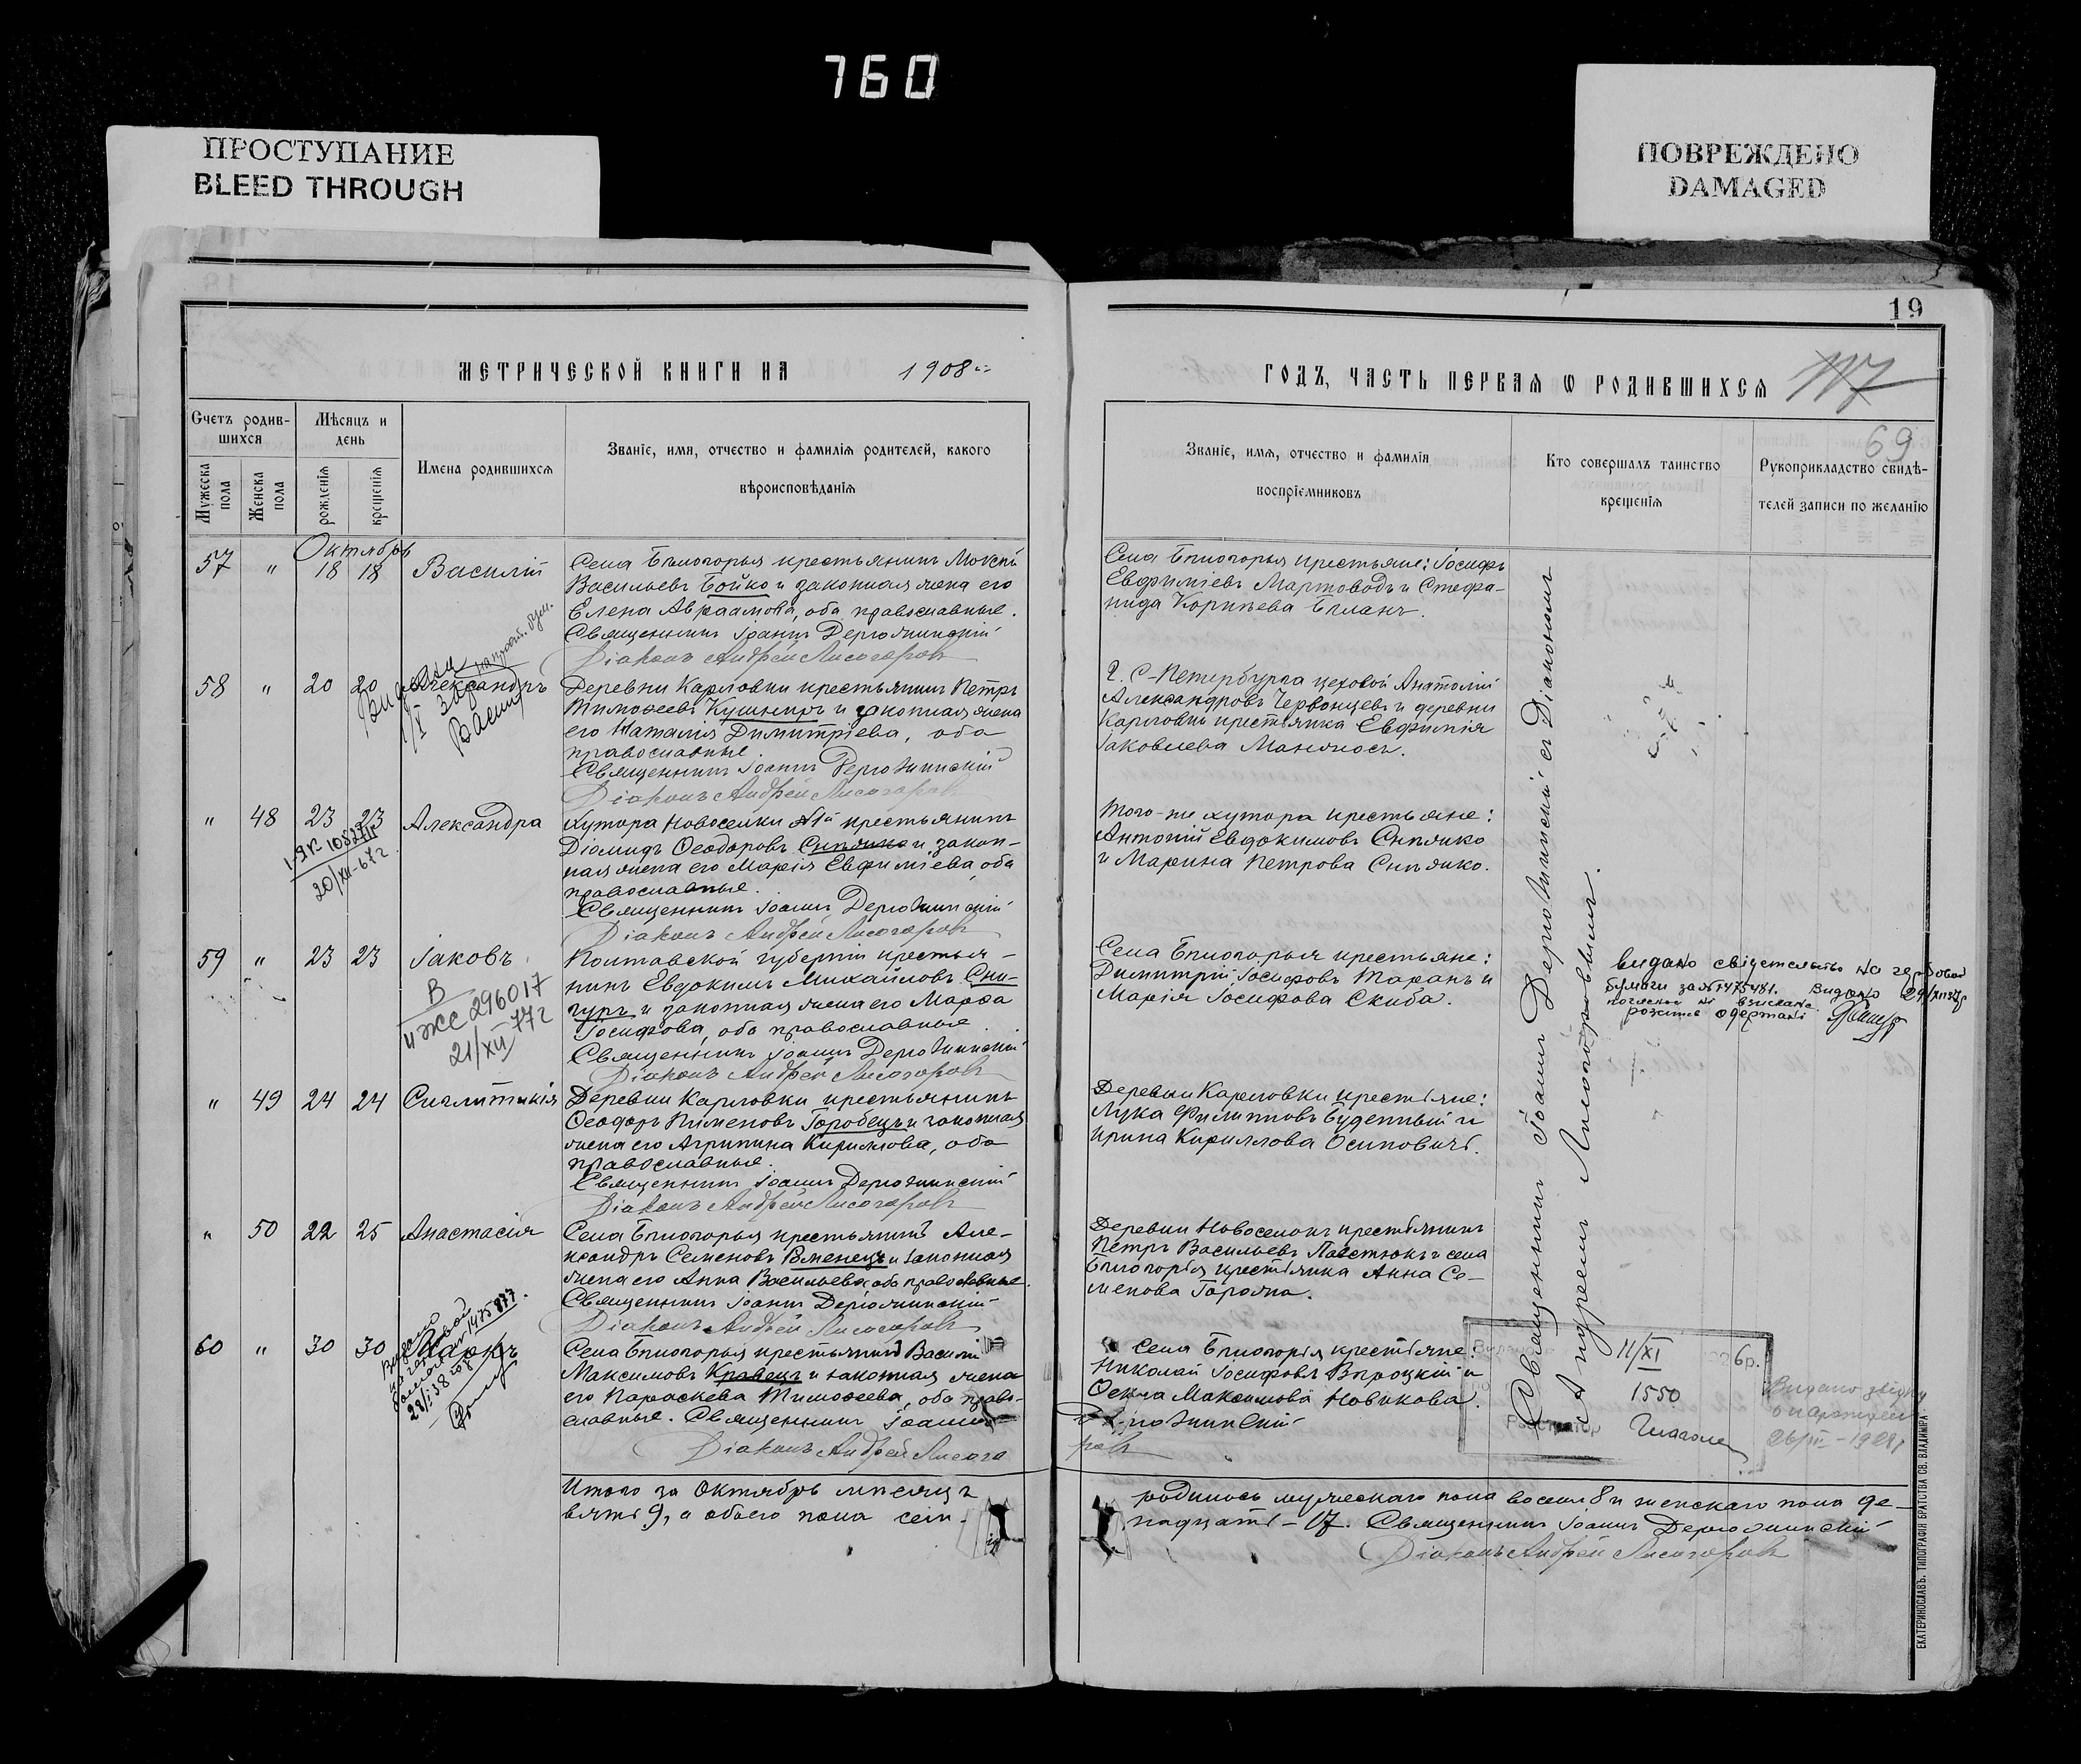 760
ПРОСТУПАНИЕ
BLEED THROUGH
ПОВРЕЖДЕНО
DAMAGED
19
МЕТРИЧЕСКОЙ КНИГИ НА 1908
Счетъ родив-
шихся
Мѣсяцъ и
день
Мужеска
пола
Женска
пола
рожденія
крещенія
Имена родившихся
Званіе, имя, отчество и фамилія родителей, какого
вѣроисповѣданія
Октябрь
57 " 18 18 Василій
Села Бѣлогорья крестьянинъ Мокій
Васильевъ Бойко и законная жена его
Елена Авраамова, оба православные.
Священникъ Іоаннъ Держинскій
Діаконъ Андрей Лисогоровъ
58 " 20 20 Александръ
Деревни Карловки крестьянинъ Петръ
Тимоѳеевъ Кушниръ и законная жена
его Наталія Димитріева, оба
православные.
Священникъ Іоаннъ
Діаконъ Андрей Лисогоровъ
" 48 23 23 Александра
1-ЯК
20/XII-67г.
Хутора Новоселки №1й крестьянинъ
Діомидъ Ѳеодоровъ и закон-
ная жена его Марія Евфиміева, оба
православные.
Священникъ Іоаннъ
Діаконъ Андрей Лисогоровъ
59 " 23 23 Іаковъ
296017
21/XII 77г
Полтавской губерніи крестья-
нинъ Евдокимъ Михайловъ Сни-
гуръ и законная жена его Марѳа
Іосифова, оба православные.
Священникъ Іоаннъ
Діаконъ Андрей Лисогоровъ
" 49 24 24 Сигклитикія
Деревни Карловки крестьянинъ
Ѳеодоръ Пименовъ Горобецъ и законная
жена его Агрипина Кириллова, оба
православные.
Священникъ Іоаннъ
Діаконъ Андрей Лисогоровъ
" 50 22 25 Анастасія
Села Бѣлогорья крестьянинъ Але-
ксандръ Семеновъ Роменецъ и законная
жена его Анна Васильева, оба православные.
Священникъ Іоаннъ
Діаконъ Андрей Лисогоровъ
60 " 30 30 Маркъ
Села Бѣлогорья крестьянинъ Василій
Максимовъ Кравецъ и законная жена
его Параскева Тимоѳеева, оба право-
славные. Священникъ Іоаннъ
Діаконъ Андрей Лисого
Итого за Октябрь мѣсяцъ
вять 9, а обоего пола сем-
ГОДЪ, ЧАСТЬ ПЕРВАЯ Ѡ РОДИВШИХСЯ
69
Званіе, имя, отчество и фамилія
воспріемниковъ
Кто совершалъ таинство
крещенія
Рукоприкладство свидѣ-
телей записи по желанію
Села Бѣлогорья крестьяне: Іосифъ
Евфиміевъ Мартоводъ и Стефа-
нида Корнѣева Бѣланъ.
Г. С-Петербурга цеховой Анатолій
Александровъ Червонцевъ и деревни
Карловки крестьянка Евфимія
Іаковлева
Того-же хутора крестьяне:
Антоній Евдокимовъ
и Марина Петрова
Села Бѣлогорья крестьяне:
Димитрій Іосифовъ Таранъ и
Марія Іосифова Скиба.
Деревни Карловки крестьяне:
Лука Филипповъ Буденный и
Ирина Кириллова Осиповичъ.
Деревни Новоселокъ крестьянинъ
Петръ Васильевъ и села
Бѣлогорья крестьянка Анна Се-
менова
Села Бѣлогорья крестьяне:
Николай Іосифовъ и
Ѳекла Максимова Новикова.
ровъ
родилось мужескаго пола восемь 8 и женскаго пола де-
надцать - 17. Священникъ Іоаннъ
Діаконъ Андрей Лисогоровъ
Священникъ Іоаннъ съ Діакономъ
Андреемъ Лисогоровымъ.
видано свідетельство на гербовой
бумаги за №1475481. Видано
11/XI 6р.
1550
Видано
1928
ЕКАТЕРИНОСЛАВЪ. ТИПОГРАФІЯ БРАТСТВА СВ. ВЛАДИМІРА